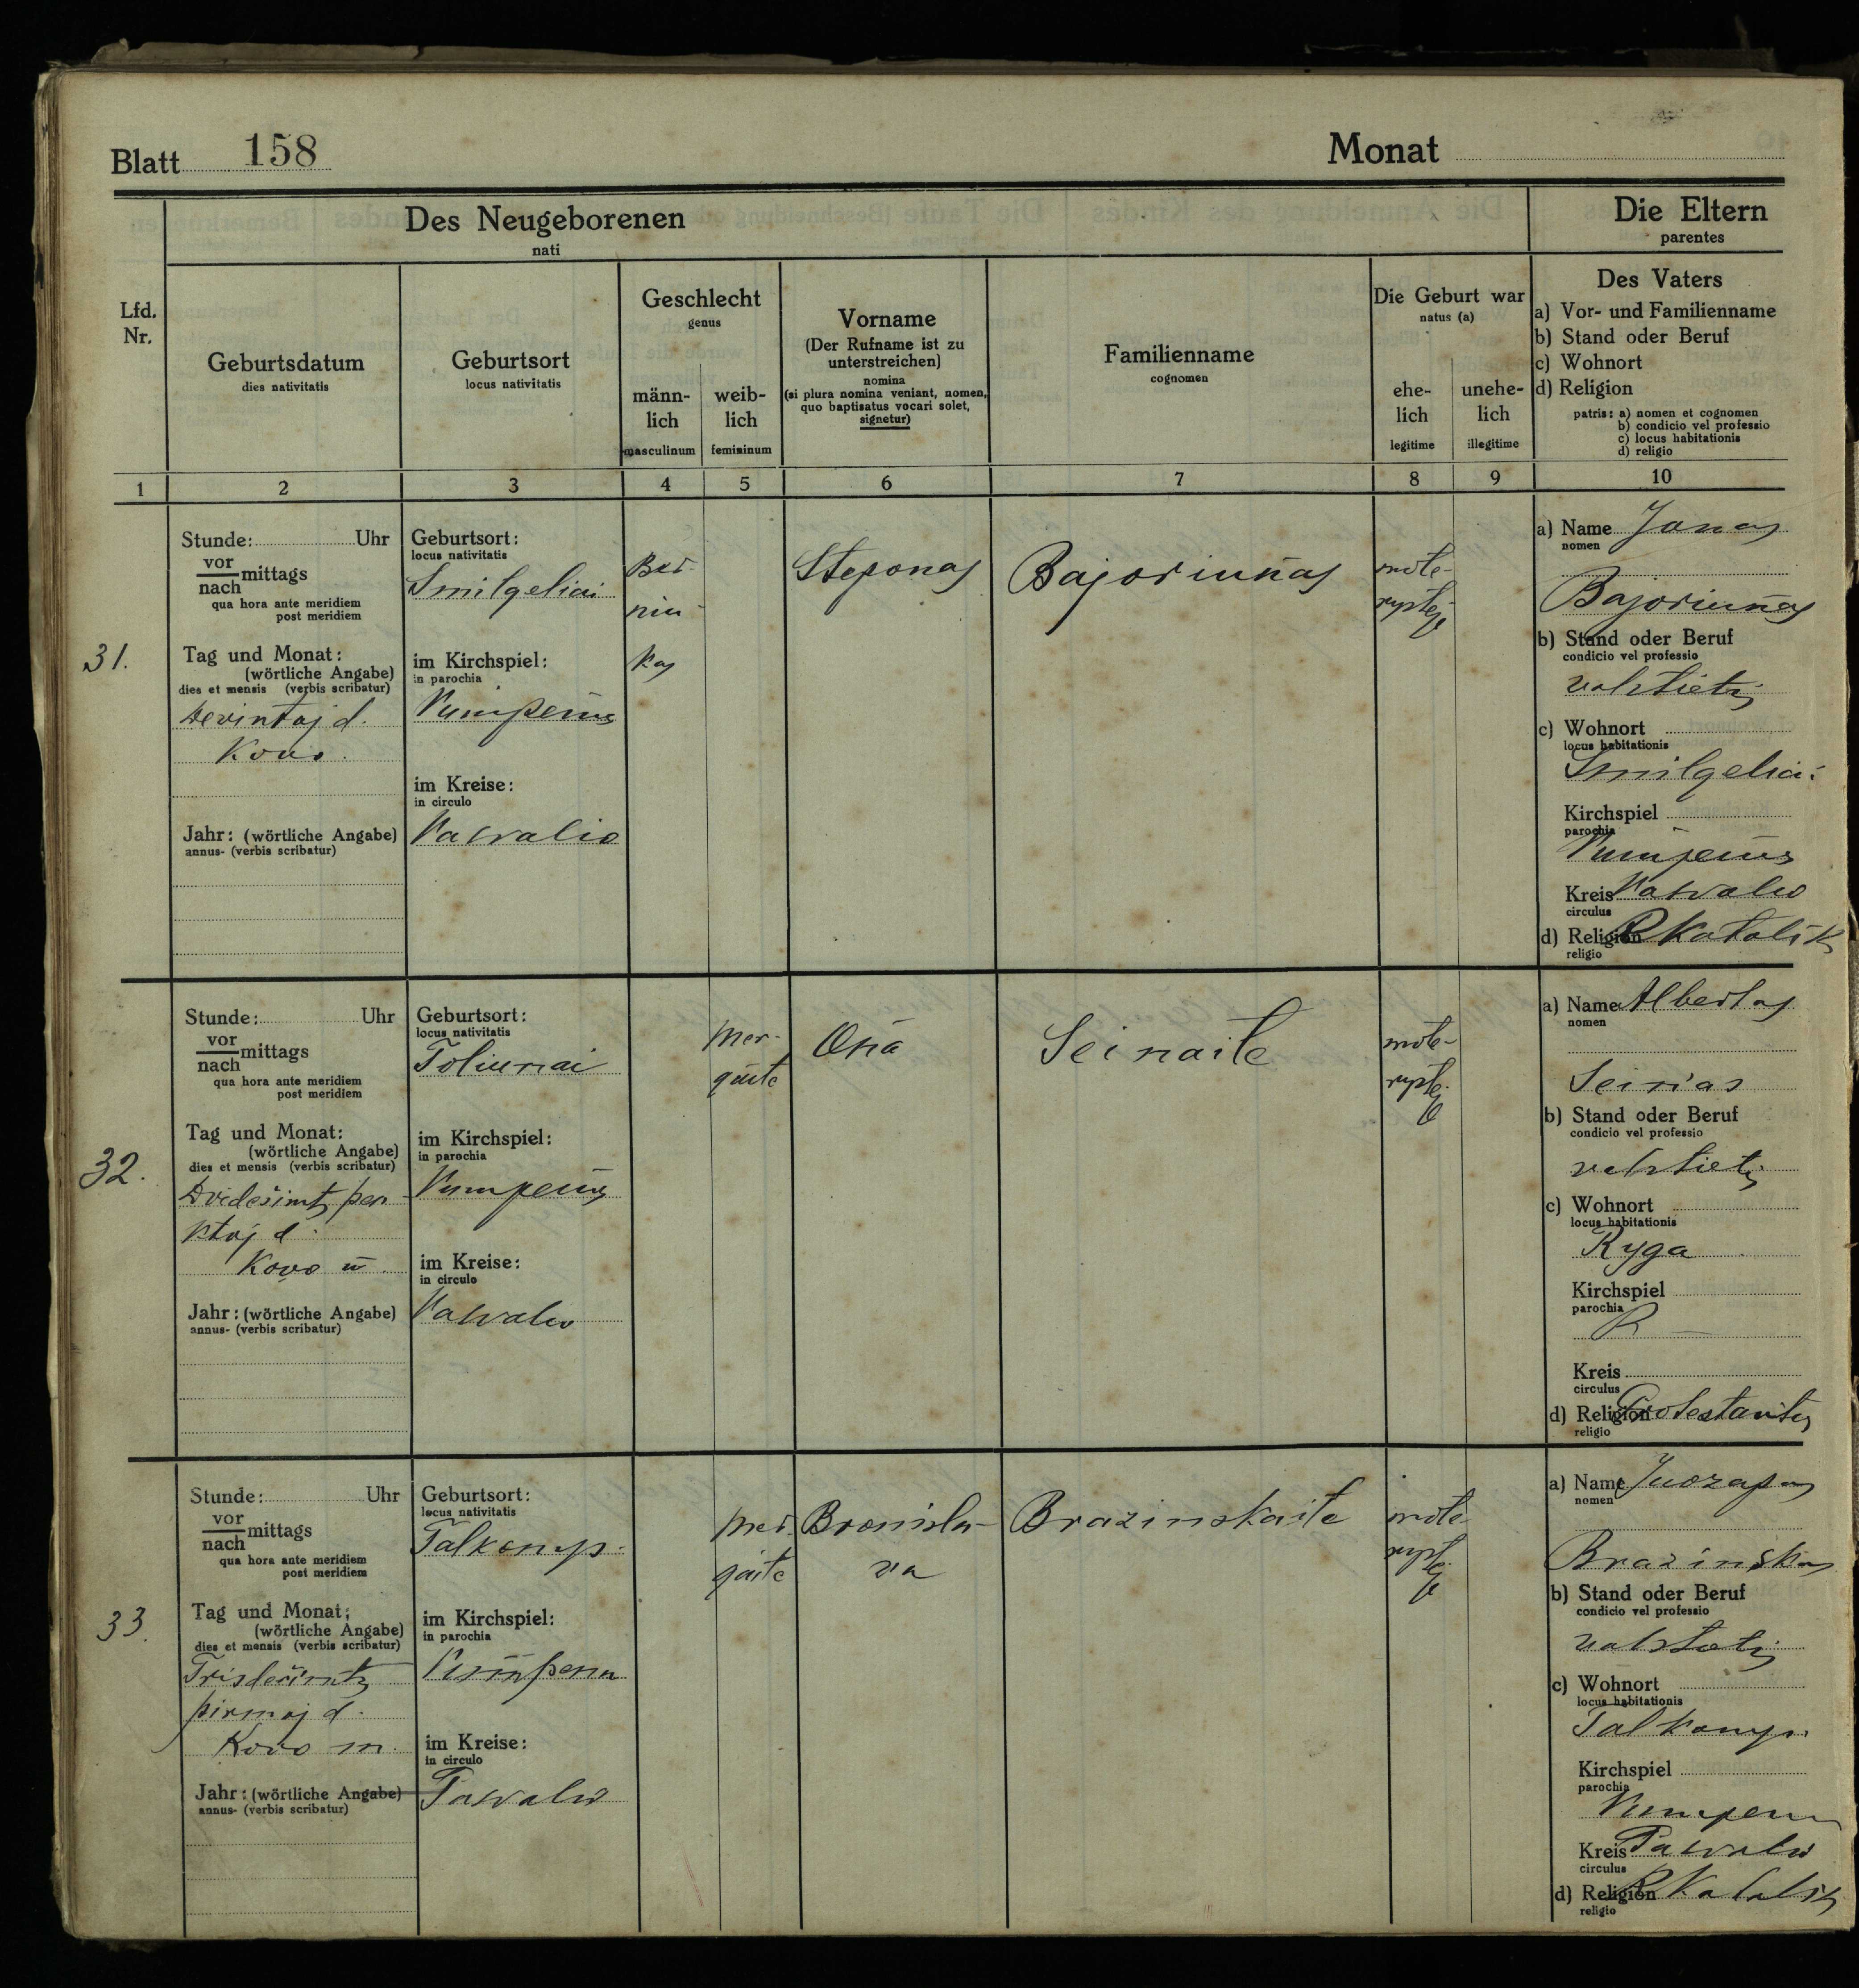 Blatt 158
Monat
Des Neugeborenen
nati
Die Eltern
parentes
Lfd.
Nr.
Geburtsdatum
dies nativitatis
Geburtsort
locus nativitatis
Geschlecht
genus
männ-
lich
masculinum
weib-
lich
femininum
Vorname
(Der Rufname ist zu
unterstreichen)
nomina
(si plura nomina veniant, nomen,
quo baptisatus vocari solet,
signetur)
Familienname
cognomen
Die Geburt war
natus (a)
ehe-
lich
legitime
unehe-
lich
illegitime
Des Vaters
a) Vor- und Familienname
b) Stand oder Beruf
c) Wohnort
d) Religion
patris: a) nomen et cognomen
b) condicio vel professio
c) locus habitationis
d) religio
1 2 3 4 5 6 7 8 9 10
31.
Stunde: Uhr
vor
nach mittags
qua hora ante meridiem
post meridiem
Tag und Monat:
(wörtliche Angabe)
dies et mensis (verbis scribatur)
Devintoj d.
Kovo
Jahr: (wörtliche Angabe)
annus- (verbis scribatur)
Geburtsort:
locus nativitatis
Smilgeliai
im Kirchspiel:
in parochia
im Kreise:
in circulo
Ber-
niu-
kas
Steponas
Bajoriunas
mote-
rystėje
a) Name Jonas
nomen
Bajoriunas
b) Stand oder Beruf
condicio vel professio
c) Wohnort
locus habitationis
Smilgeliai
Kirchspiel
parochia
Kreis
circulus
d) Religion R Katalik
religio
32.
Stunde: Uhr
vor
nach mittags
qua hora ante meridiem
post meridiem
Tag und Monat:
(wörtliche Angabe)
dies et mensis (verbis scribatur)
Dvidešimts pen
ktoj d
Kovo
Jahr: (wörtliche Angabe)
annus- (verbis scribatur)
Geburtsort:
locus nativitatis
Toliunai
im Kirchspiel:
in parochia
im Kreise:
in circulo
Mer-
gaite
Ona
Seinaite
mote-
rystėje
a) Name Albertas
nomen
Seinas
b) Stand oder Beruf
condicio vel professio
c) Wohnort
locus habitationis
Ryga
Kirchspiel
parochia
R
Kreis
circulus
d) Religion Protestantas
religio
33.
Stunde: Uhr
vor
nach mittags
qua hora ante meridiem
post meridiem
Tag und Monat:
(wörtliche Angabe)
dies et mensis (verbis scribatur)
Trisdešimts
pirmoj d.
Kovo m.
Jahr: (wörtliche Angabe)
annus- (verbis scribatur)
Geburtsort:
locus nativitatis
Talkonys
im Kirchspiel:
in parochia
im Kreise:
in circulo
Mer-
gaite
Bronisla-
va
Brazinskaite
mote
rystėje
a) Name Juozapas
nomen
Brazinskas
b) Stand oder Beruf
condicio vel professio
c) Wohnort
locus habitationis
Talkonys
Kirchspiel
parochia
Kreis
circulus
d) Religion R Katalik
religio